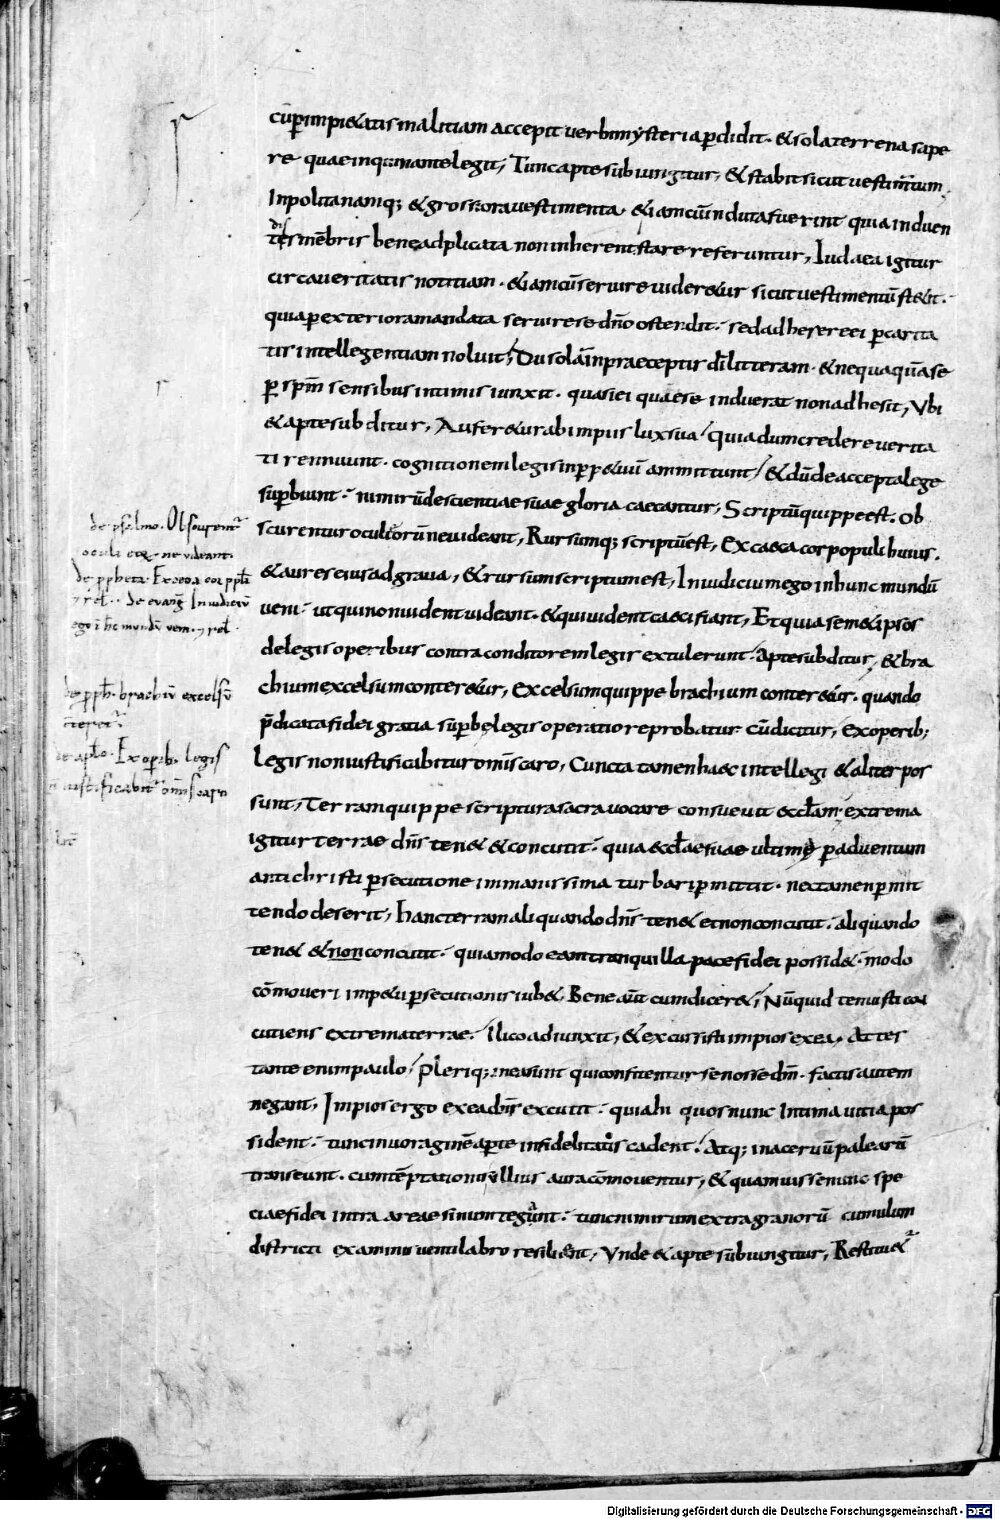 cū p̄ impi&atis malitiam accepit uerbi mysteria p̄didit· & sola terrena sape
re quae inquinante legit, Tunc apte subiungitur, & stabit sicut uestim̄tum,
Inpolita namq; & grossiora uestimenta· &iamcū induta fuerint quia induen
tis mēbris bene adplicata non inherent stare referuntur, Iudaea igitur
circa ueritatis notitiam· &iamcū seruire uider&ur sicut uestimentū st&it·
quia p̄ exteriora mandata seruire se dn̄o ostendit· sed adherere ei p̄ carita
tis intellegentiam noluit, Dū solā in praeceptis dī litteram· & nequaquā se
p̄ sp̄m sensibus intimis iunxit· quasi ei quae se induerat non adhesit, Vbi
& apte subditur, Aufer&ur ab impiis lux sua/ quia dum credere uerita
ti rennuunt· cognitionem legis inp̄p&uū ammittunt/ & dū de accepta lege
sup̄biunt· nimirū de scientiae suae gloria caecantur, Scriptū quippe est· Ob
scurentur oculi eorū ne uideant, Rursumq; scriptū est, Excaeca cor populi huius·
& aures eius adgraua, & rursum scriptum est, In iudicium ego in hunc mundū
ueni· ut qui non uident uideant· & qui uident caeci fiant, Et quia sem&ipsos
de legis operibus contra conditorem legis extulerunt· Apte subditur, & bra
chium excelsum conter&ur, Excelsum quippe brachium conter&ur· quando
p̄dicata fidei gratia sup̄be legis operatio reprobatur· cū dicitur, Ex operib;
legis non iustificabitur omīs caro, Cuncta tamen haec intellegi & aliter pos
sunt, Terram quippe scriptura sacra uocare consueuit ęccl̄am· extrema
igitur terrae dn̄s ten& & concutit· quia ęccl̄ae suae ultima p̄ aduentum
antichristi p̄secutione inmanissima turbari p̄mittit· nec tamen p̄mit
tendo deserit, Hanc terram aliquando dn̄s ten& et non concutit· aliquando
ten& & non concutit· quia modo eam tranquilla pace fidei possid&· modo
cōmoueri imp&u p̄secutionis iub&, Bene aūt cum dicer&, Nūquid tenuisti con
cutiens extrema terrae· Ilico adiunxit, & excussisti impios ex ea, Attes
tante enim paulo/ Pleriq; ne sunt qui confitentur se nosse dm̄· factis autem
negant, Impios ergo ex ea dn̄s excutit· quia hi quos nunc intima uitia pos
sident· tunc in uoraginē ap̄te infidelitatis cadent/ Atq; in aceruū palearū
transeunt· cum tēptationis ullius aura cōmouentur, & quamuis se nunc spe
ciae fidei intra areae sinum tegunt· tunc nimirum extra granorū cumulum
districti examinis uentilabro resilient, Vnde & apte subiungitur, Restitu&ur
de psalmo· Obscurentr̄
oculi eorꝝ· ne uideant·
de ppheta· Exceca cor pplī
⁊ rel̄· De euanḡ In iudiciū
ego ī hc̄ mundū ueni· ⁊ rel̄·
de pph̄· brachiū excelsū
ɔteretr̄·
de aplo· Ex operib; legis
n̄ iustificabitr̄ om̄is caro